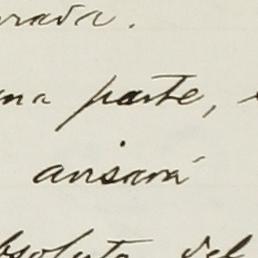 rada.
na parte,
ansará
bsoluta del